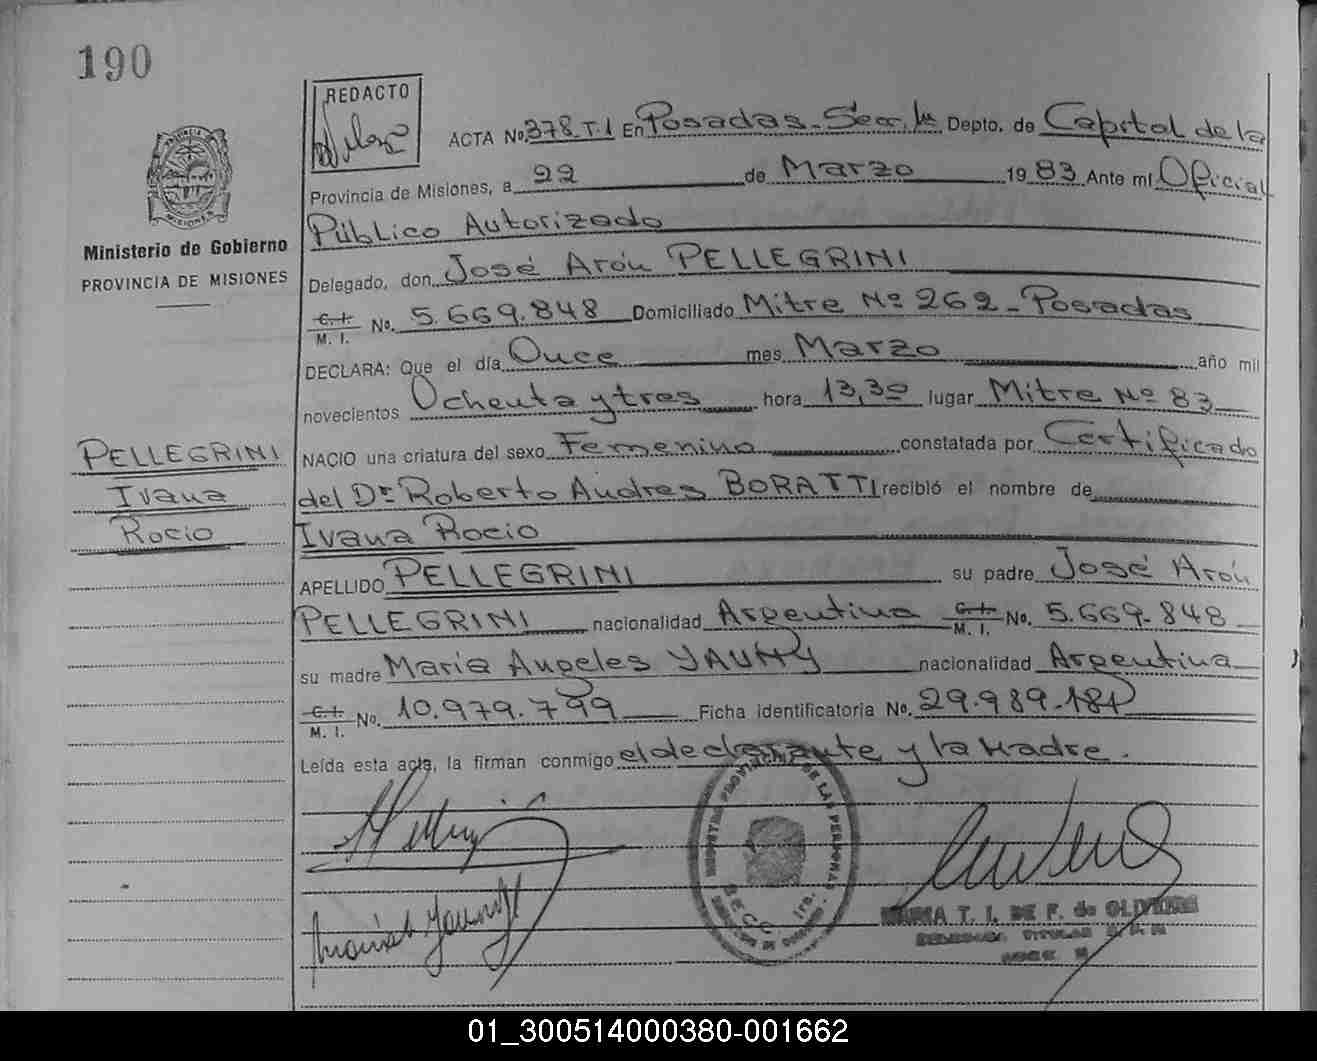 190
REDACTO
ACTA No. 378 T.1 En Posadas - Secc. 1ra Depto. de Capital de la
Provincia de Misiones, a 22 de Marzo 1983 Ante mí Oficial
Público Autorizado
Delegado, don José Arón PELLEGRINI
C. I. M. I. No. 5.669.848 Domiciliado Mitre Nº 262 - Posadas
DECLARA: Que el día Once mes Marzo año mil
novecientos Ochenta y tres hora 13,30 lugar Mitre Nº 83
NACIO una criatura del sexo Femenino constatada por Certificado
del Dr. Roberto Andres BORATTI recibló el nombre de
Ivana Rocio
APELLIDO PELLEGRINI su padre José Arón
PELLEGRINI nacionalidad Argentina C. I. M. I. No. 5.669.848
su madre María Angeles YAUNY nacionalidad Argentina
C. I. M. I. No. 10.979.799 Ficha identificatoria No. 29.989.181
Leída esta acta, la firman conmigo el declarante y la Madre.
PROVINCIA DE MISIONES
Ministerio de Gobierno
PROVINCIA DE MISIONES
PELLEGRINI
Ivana
Rocio
REGISTRO PROVINCIAL DE LAS PERSONAS
Secc. 1ra.
MARIA T. I. DE F. de OLIVEIRA
DELEGADA TITULAR R. P. P.
01_300514000380-001662